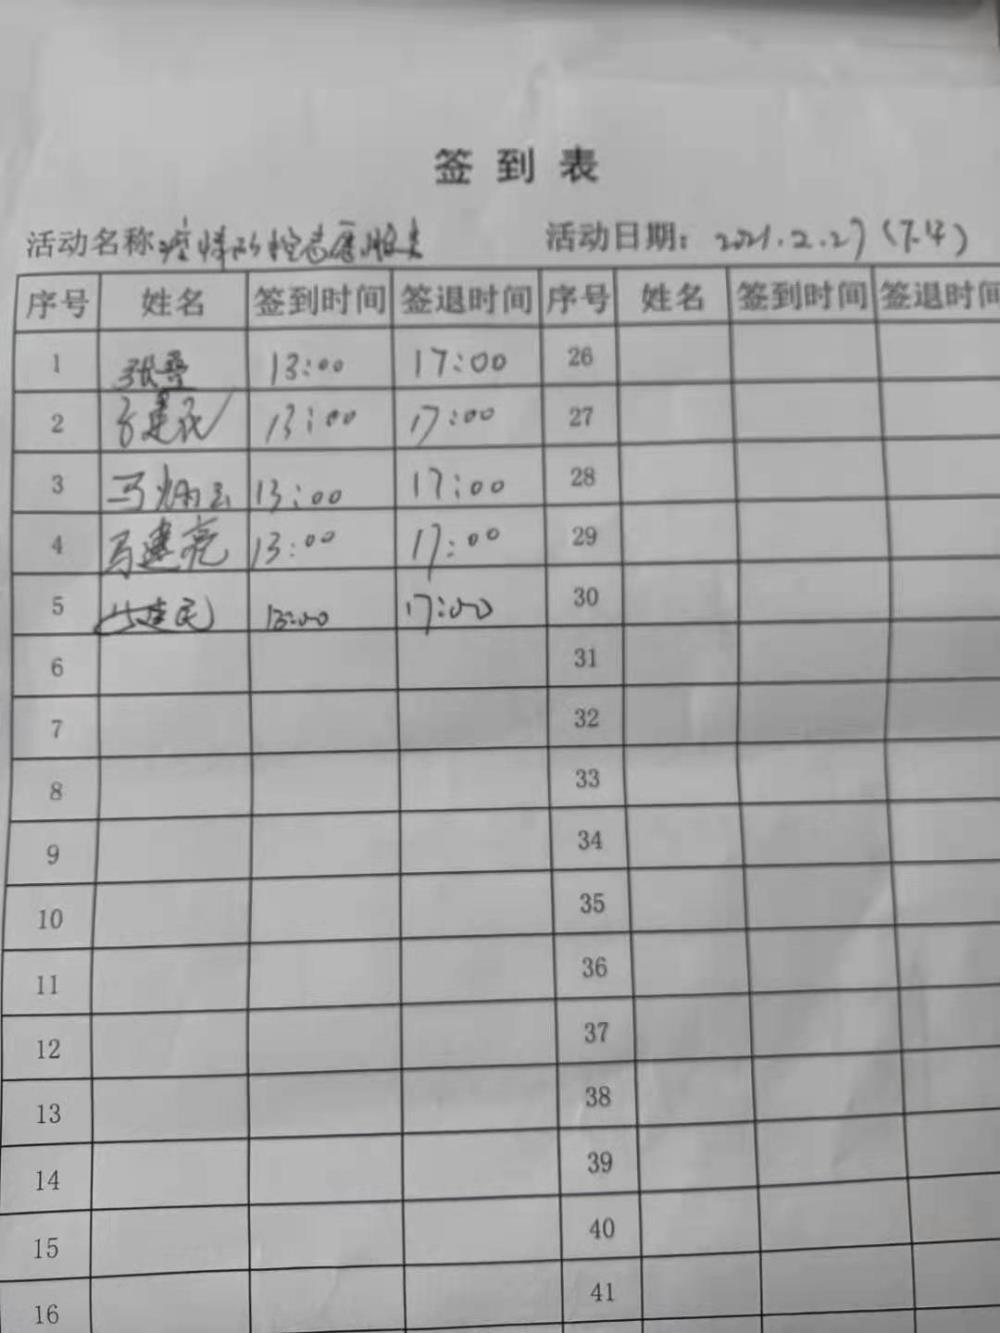 签到表
活动名称：疫情防控志愿服务 活动日期：2021.2.27（下午）
序号 姓名 签到时间 签退时间 序号 姓名 签到时间 签退时间
1 张 13:00 17:00 26
2 13:00 17:00 27
3 马炳云 13:00 17:00 28
4 马建亮 13:00 17:00 29
5 建民 13:00 17:00 30
6 31
7 32
8 33
9 34
10 35
11 36
12 37
13 38
14 39
15 40
16 41